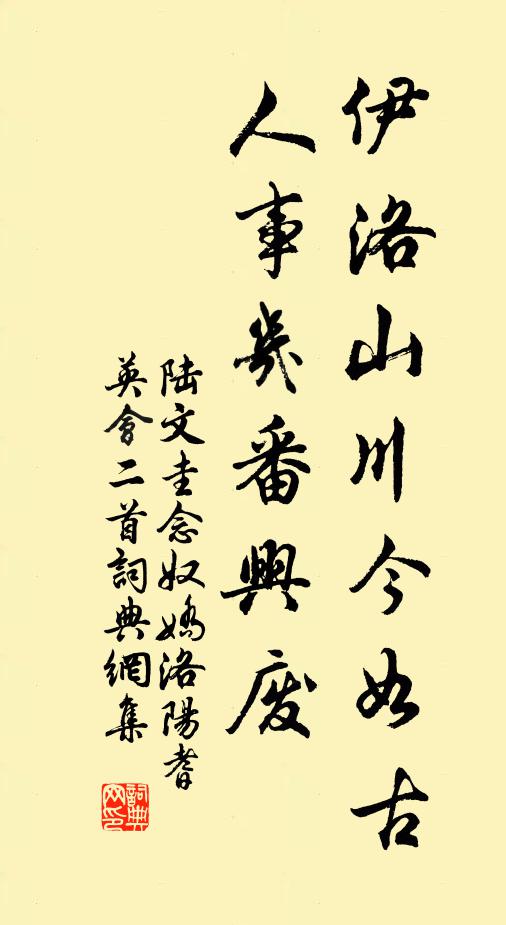 伊洛山川今如古
人事幾番興廢
陆文圭念奴嬌洛陽耆
英會二首詞典網集
詞典
网印